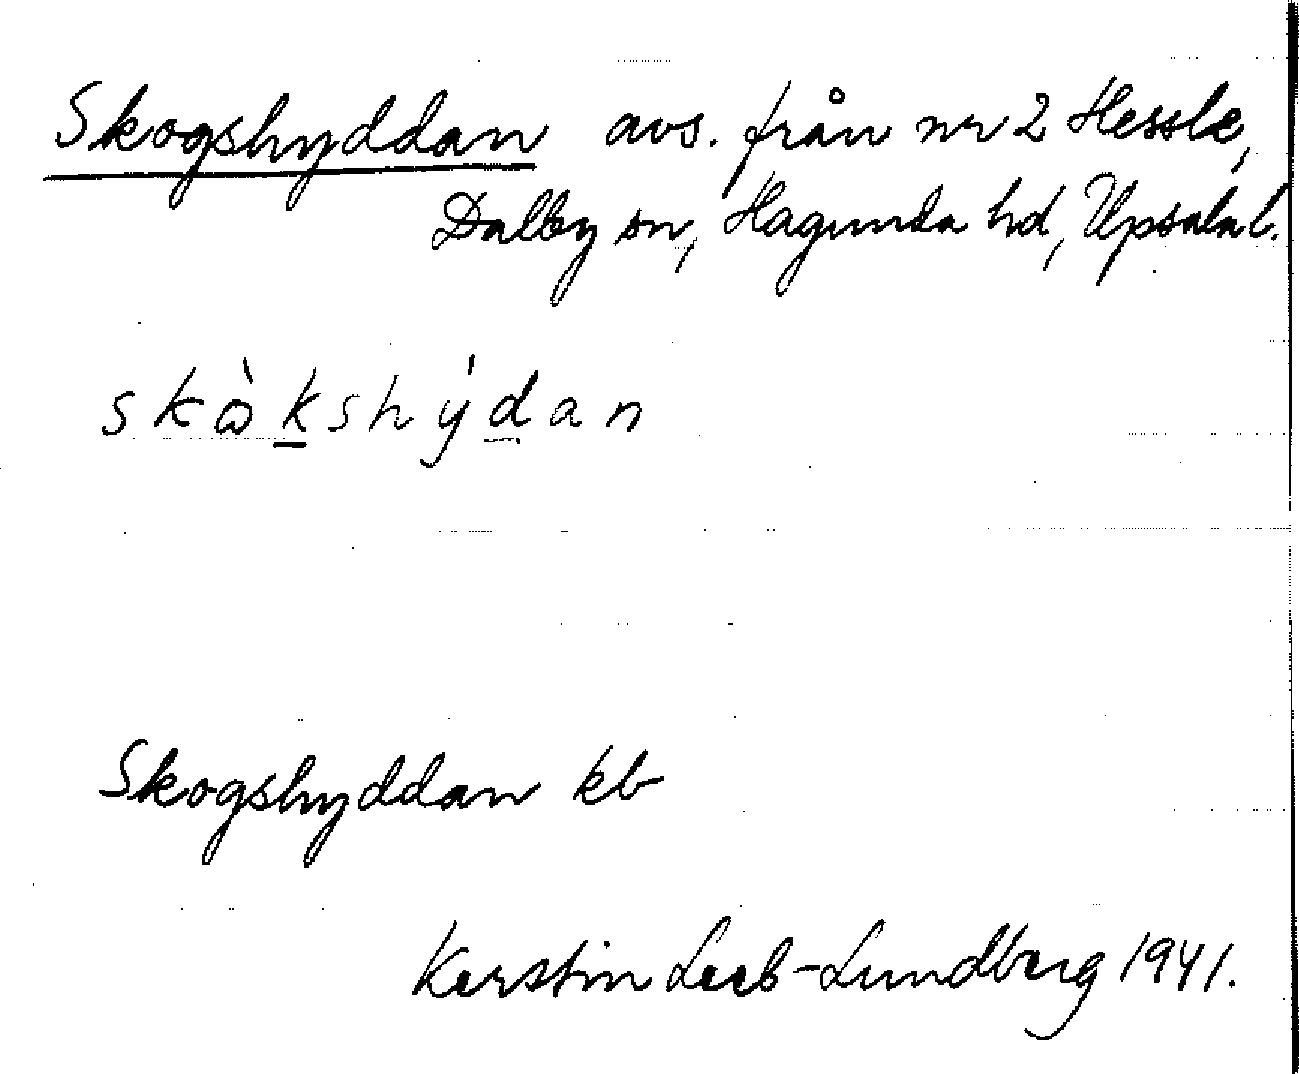 Skogshyddan avs. från nr 2 Hessle,
Dalby sn, Hagunda hd, Upsala l.
skὼkshýdan
Skogshyddan kb
Kerstin Leeb-Lundberg 1941.